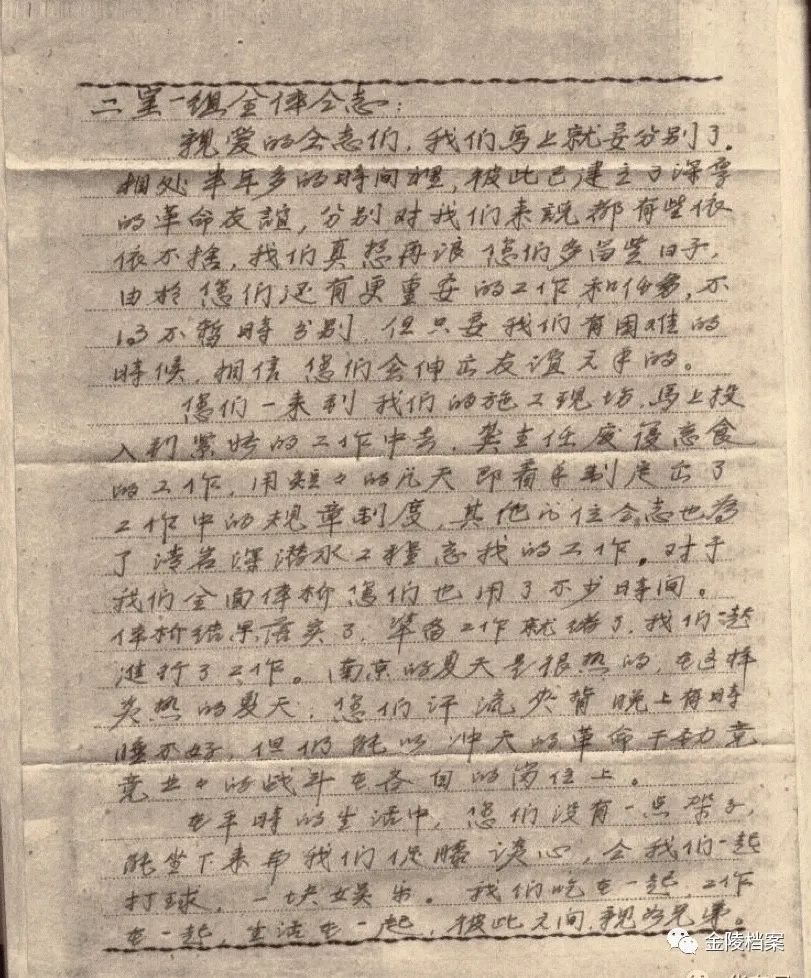 二室一组全体仝志：
亲爱的仝志们，我们馬上就要分别了。
相处半年多的時间裡，彼此已建立了深厚
的革命友誼，分别对我们来說都有些依
依不捨，我们真想再浪您们多留些日子，
由於您们还有更重要的工作和任务，不
得不暂時分别，但只要我们有困难的
時候，相信您们会伸出友谊之手的。
您们一来到我们的施工现场，馬上投
入到緊张的工作中去，龚主任廢寝忘食
的工作，用短々的几天即着手制定出了
工作中的规章制度，其他几位仝志也為
了沈宕深潜水工程忘我的工作。对于
我们全面体检您们也用了不少時间。
体检结果落实了，準备工作就绪了，我们
進行了工作。南京的夏天是很热的，在这样
炎热的夏天，您们汗流夹背晚上有時
睡不好，但仍能以冲天的革命干劲兢
兢业々的战斗在各自的岗位上。
在平時的生活中，您们没有一点架子，
能坐下来和我们促膝谈心，仝我们一起
打球，一块娱乐。我们吃在一起，工作
在一起，生活在一起，彼此之间，親如兄弟。
金陵档案